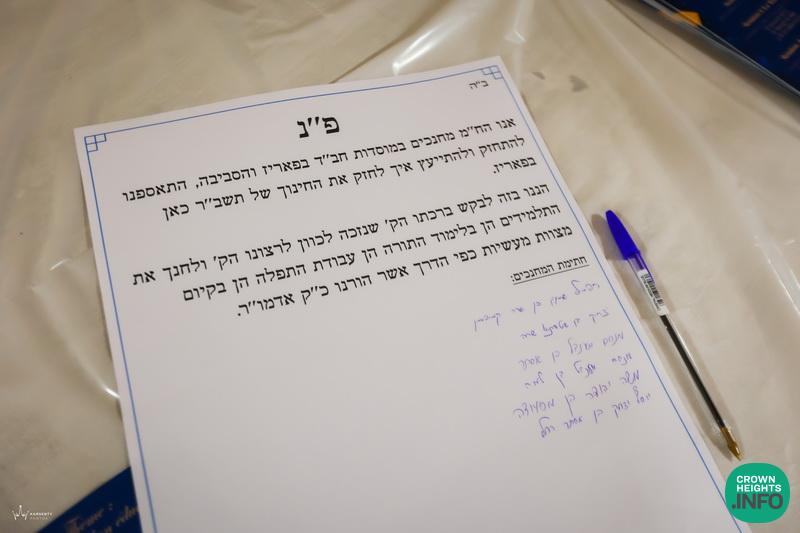 ב"ה
פ"נ
אנו הח"מ מחנכים במוסדות חב"ד בפאריז והסביבה, התאספנו
להתחזק ולהתייעץ איך לחזק את החינוך של תשב"ר כאן
בפאריז.
הננו בזה לבקש ברכתו הק' שנזכה לכוון לרצונו הק' ולחנך את
התלמידים הן בלימוד התורה הן עבודת התפלה הן בקיום
מצוות מעשיות כפי הדרך אשר הורנו כ"ק אדמו"ר.
חתימת המחנכים:
בן שרה
מנחם מענדל בן אסתר
מנחם מענדל בן
בן
יוסף יצחק בן אסתר רחל
CROWN
HEIGHTS
.INFO